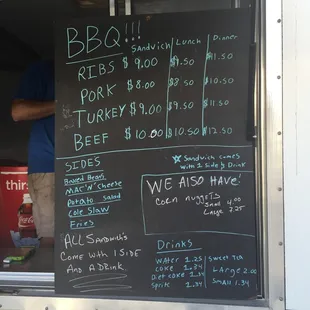 BBQ!!!
Sandwich Lunch Dinner
RIBS $9.00 $9.50 $11.50
PORK $8.00 $8.50 $10.50
TURKEY $9.00 $9.50 $11.50
BEEF $10.00 $10.50 $12.50
SIDES
Baked Beans
MAC'N'Cheese
Potato Salad
Cole Slaw
Fries
Sandwich comes
with 1 side & Drink
WE Also HAVE:
CORN NUGGETS
Small 4.00
Large 7.25
ALL SANDWICH'S
COME WITH 1 SIDE
AND A DRINK.
Drinks
WATER 1.25
COKE 1.34
Diet coke 1.34
Sprite 1.34
SWEET TEA
LARGE 2.00
Small 1.34
thirs
Coca-Cola